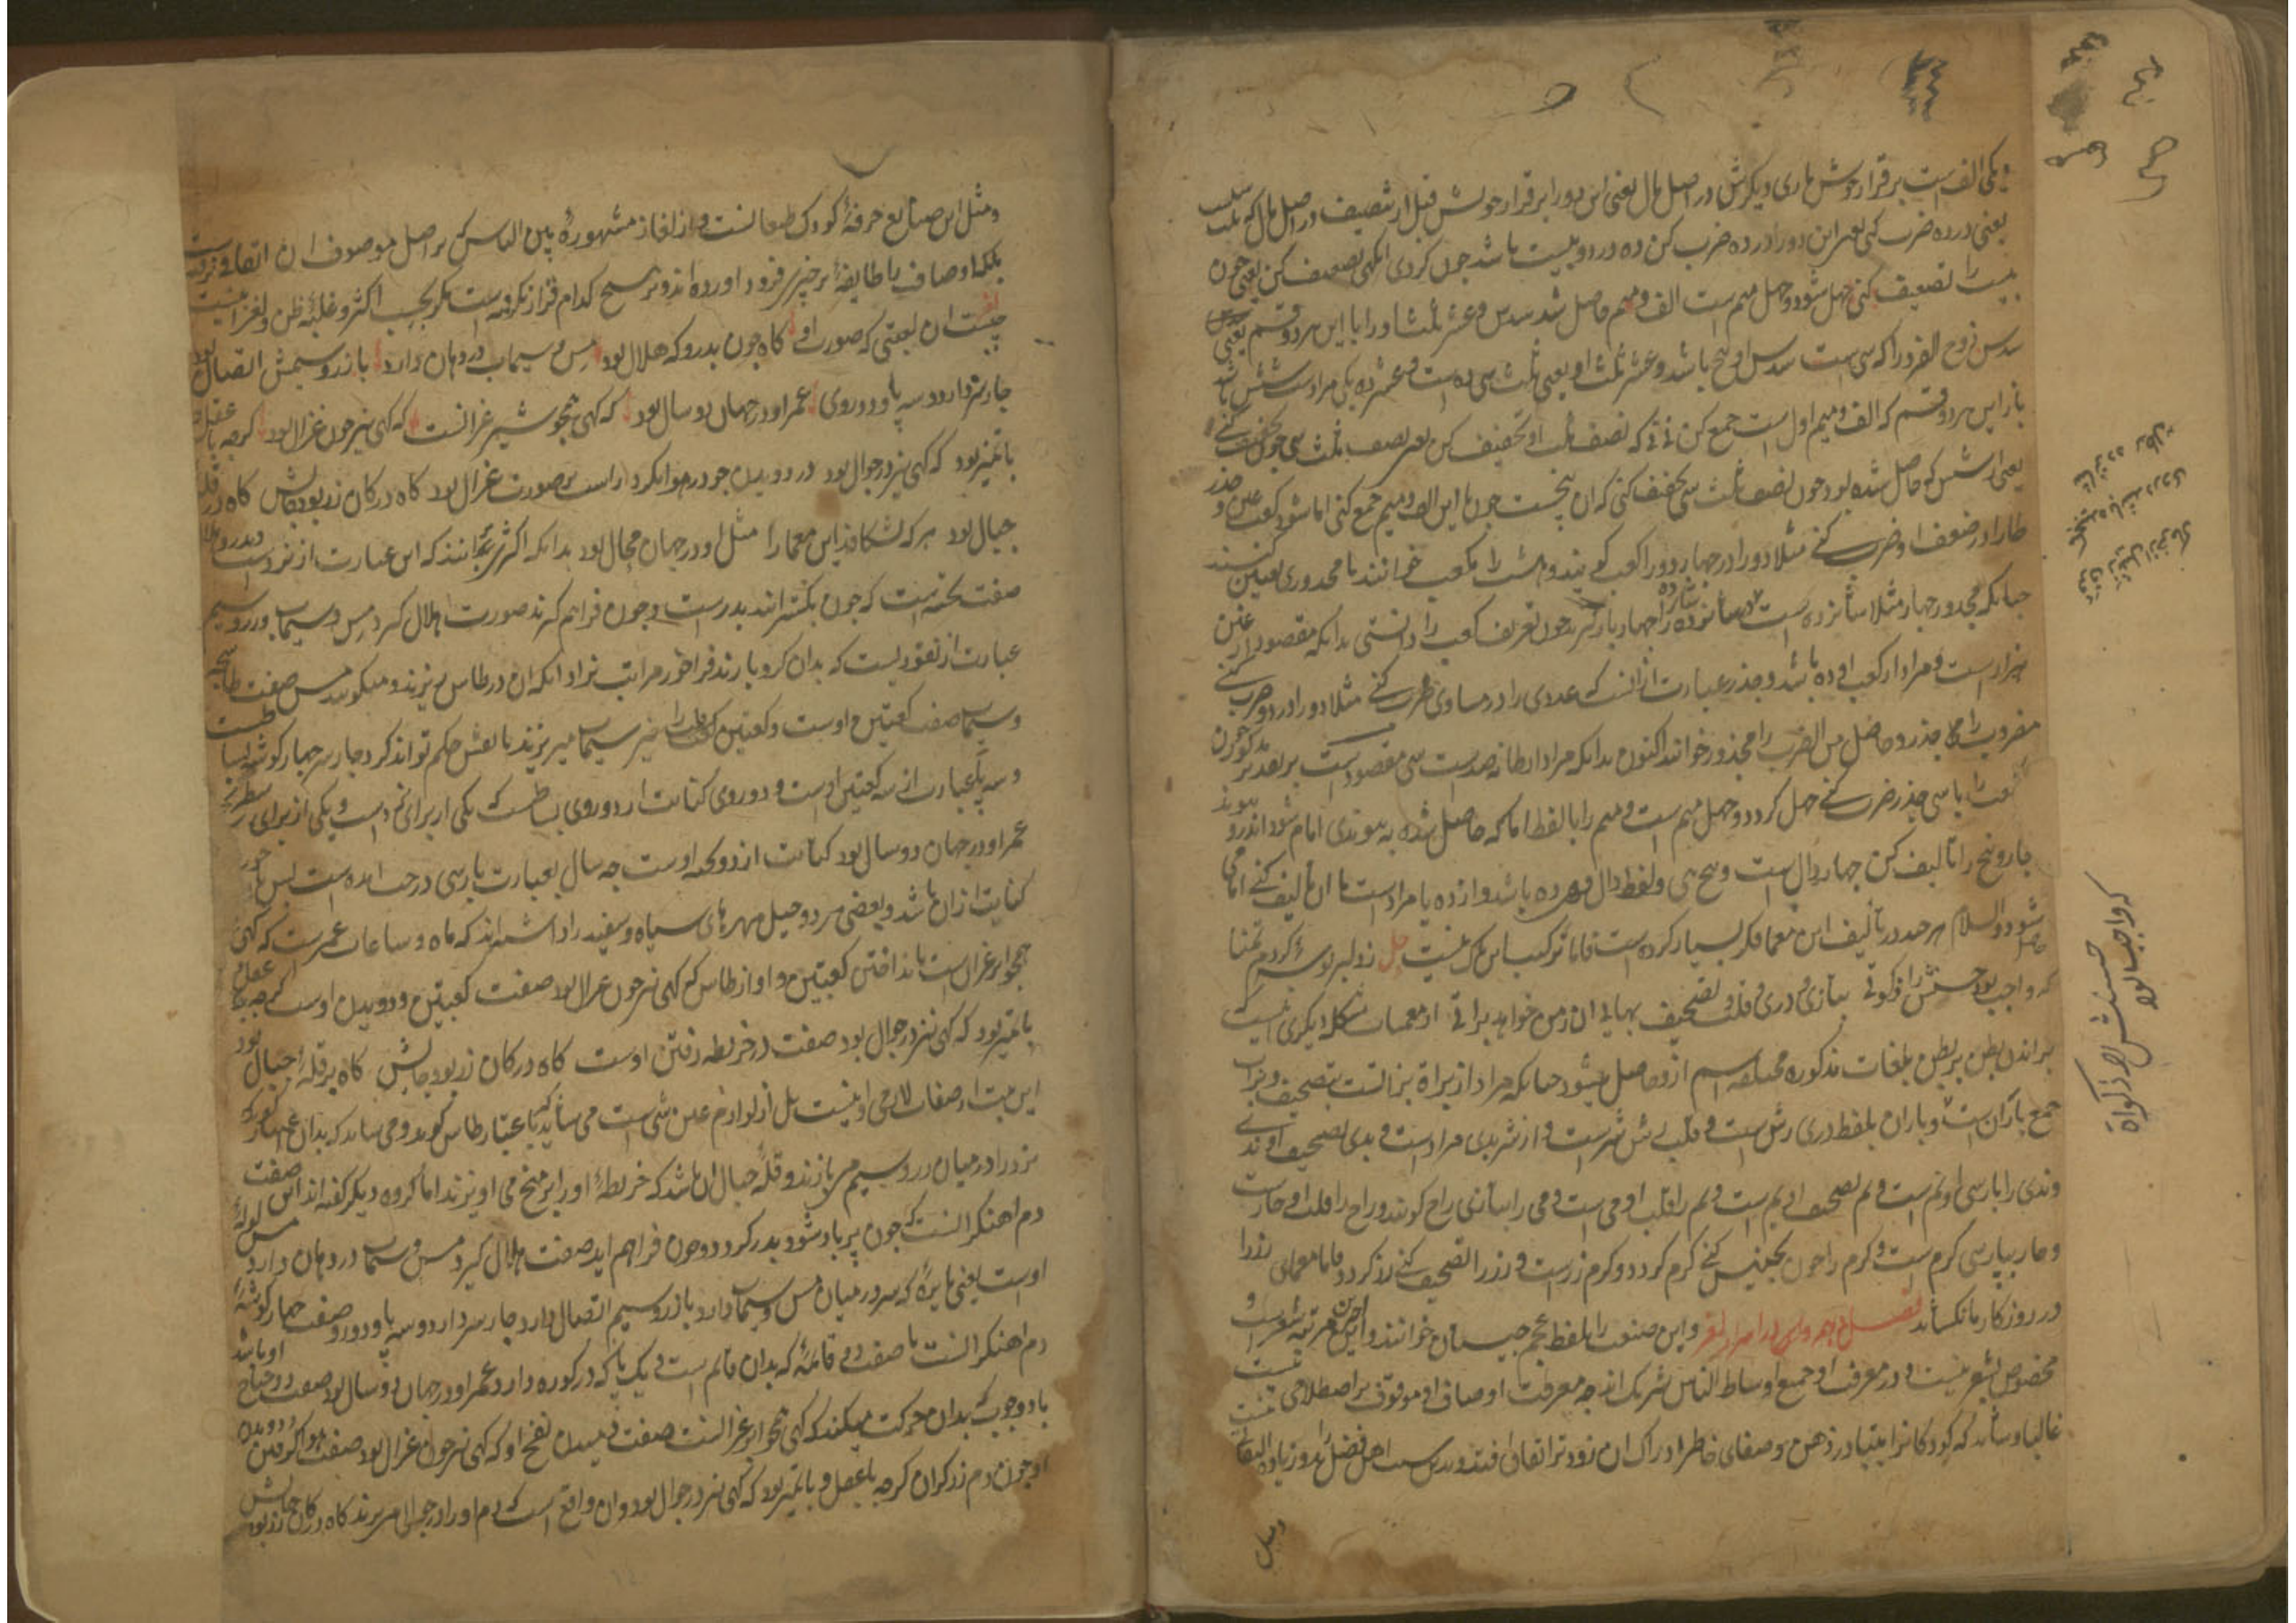 یکی الف است برقرار خوش داری دیگرش در اصل مال یعنی این دو را برقرار خویش قبل از تنصیف در اصل مال که ثلث
یعنی در ده ضرب کنی یعنی این دو را در ده ضرب کن ده در دو بیست باشد چون کردی انکهی تضعیف کن یعنی چون
بیست را تضعیف کنی چهل شود و چهل میم است الف و میم حاصل شد سدس و عشر ثلث او را با این هر دو قسم یعنی
سدس زوج الفرد را که سی است سدس او پنج باشد و عشر ثلث او یعنی ثلث سی ده است و عشر ده یکی مراد است شش باشد
باز این هر دو قسم که الف و میم اول است جمع کن نی نی که نصف ثلث او تخفیف کن یعنی نصف ثلث سی چون تخفیف کنی
یعنی از شش که حاصل شده بود چون نصف ثلث سی تخفیف کنی که ان پنجست چون با این الف و میم جمع کنی اما شود کعب عین و جذر
طا را در ضعف او ضرب کنی مثلا دو را در چهار دو را کعب کویند و هشت را مکعب خوانند با مجذوری تعیین کنند
چنانکه مجذور چهار مثلا شانزده است شانزده را چهار بار کیرند چون تعریف کعب را دانستی بدانکه مقصود از عین
هزار است و مراد از کعب او ده باشد و جذر عبارت از انست که عددی را در مساوی ضرب کنی مثلا دو را در دو ضرب کنی
مضروب را جذر و حاصل من الضرب را مجذور خوانند اکنون بدانکه مراد از طا نهصد است سی مقصود است بر تقدیر مذکور چون
کعب را با سی جذر ضرب کنی چهل کردد و چهل میم است و میم را با لفظ اما که حاصل شده به پیوندی امام شود اندرو پیوند
چار و پنج را تالیف کن چهار دال است و پنج هی و لفظ دال و هی ده باشد و از ده یا مراد است با ان تالیف کنی امامی
شود والسلام هر چند در تألیف این معما فکر بسیار کرده است فاما ترکیبا سبک نیست حل زو لبر بوسه کردم تمنا
که واجب بود حسنش را زکوتی بتازی و دری و قلب و تصحیف بهایی ان زمن خواهد براتی از معمیات مشکله دیکری نیست که
براندن بطن بر بطن بلغات مذکوره مختلفه اسم ازو حاصل میشود چنانکه مراد از براة بزانست بتصحیف و بزاب
جمع باران است و باران بلفظ دری رش است و قلب رش شر است و از شر بدی مراد است و بدی تصحیف او ندی
و ندی را بپارسی او نم است و نم تصحیف او یم است و یم را قلب او می است و می را بتازی راح کویند و راح را قلب او حار است
و حار بپارسی کرم است و کرم را چون تجنیس کنی کرم کردد و کرم رز است و رز را تصحیف کنی زر کردد فاما معمای زرا
در روزکار مانکساند فصل پنجم در لغز و این صنعت را بلفظ عجم چیستان خوانند و این مرتبه شعر است و
مخصوص بشعر نیست و در معرفت او جمیع اوساط الناس شریک اند چه معرفت اوصاف او موقوف بر اصطلاحی نیست
غالبا و شاید که کودکانرا بتبادر ذهن و صفای خاطر ادراک ان زودتر اتفاق افتد و بدین سبب اهل فضل بدو زیاده التفات
و مثل این صنایع حرفۀ کودک طبعانست و از الغاز مشهوره بین الناس که بر اصل موصوف ان اتفاق نیست
بلکه اوصاف را طایفۀ بر چیزی فرود اورده اند و بر هیچ کدام قرار نکرفته است مکر بحسب اکثر و غلبۀ ظن و لغز اینست
چیست ان لعبتی که صورت او کاه چون بدر و که هلال بود مس و سیماب در دهان دارد باز زر و سیمش اتصال بود
چار سر دارد و سه پا و دو روی عمر او در جهان دو سال بود که کهی همچو شیر غرانست که کهی نیز چون غزال بود کرچه با عقل
با تمیز بود که کهی نیز در جوال بود در دویدن چو در هوا نکرد راست بر صورت غزال بود کاه در کان زر بود جایش کاه در قله
جبال بود هر که بشکافد این معما را مثل او در جهان محال بود بدانکه اکثر بر انند که این عبارت از نرد است و بدر و هلال
صفت تخته است که چون بکسترانند بدر است و چون فراهم کیرند صورت هلال کیرد مس و سیماب و زر و سیم
عبارت از نقودیست که بدان کرو بازند فراخور مراتب نراد انکه ان در طاس می ریزند و میکویند مس صفت طاس
و سیماب صفت کعبتین اوست و کعبتین سیماب میریزند تا نقش حکم تواند کرد چار سر چهار کوشه اوست
و سه پا عبارت از سه کعبتین اوست و دو روی کنایت از دو روی بساطست که یکی از برای نرد است و یکی از برای شطرنج
عمر او در جهان دو سال بود کنایت از دو تخته اوست چه سال بعبارت پارسی درخت امده است پس
کنایت از ان باشد و بعضی مر دو خیل مهرهای سیاه و سفید را داشته اند که ماه و ساعات عمر است که کهی
همچو ابر غران است باندافتن کعبتین و اواز طاس که کهی نیز چون غزال بود صفت کعبتین و دویدن اوست کرچه با عقل
با تمیز بود که کهی نیز در جوال بود صفت در خریطه رفتن اوست کاه در کان زر بود جایش کاه بر قلۀ جبال بود
این بیت از صفات لازمی او نیست بل از لوازم عین شی است می شاید که باعتبار طاس کویند و می شاید که بدان اعتبار که
نرد را در میان زر و سیم می بازند و قلۀ جبال ان باشد که خریطۀ او را بر میخ می اویزند اما کروه دیکر کفته اند این صفت
دم اهنکر انست که چون پر باد شود بدر کردد و چون فراهم اید صفت هلال کیرد مس و سیماب در دهان دارد مس لولۀ
اوست یعنی نایزۀ که سر در میان مس و سیماب دارد باز زر و سیم اتصال دارد چار سر دارد و سه پا و دو رو صفت چهار کوشۀ
دم اهنکر انست با صفت دو قائمۀ که بدان قائم است و یک پا که در کوره دارد عمر او در جهان دو سال بود صفت دو جناح او باشد
با دو چوب که بدان حرکت میکند که کهی همچو ابر غرانست صفت دمیدن نفخ او که کهی نیز چون غزال بود صفت هوا کرفتن و دویدن
او چون دم زرکران کرچه با عقل و با تمیز بود که کهی نیز در جوال بود و ان واقع است که دم او را در جوال میبرند کاه در کان زر بود جایش
که واجب بود
حسنش را زکواة